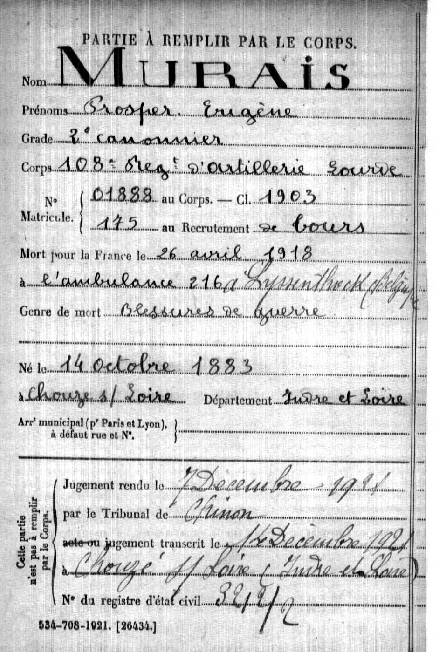 PARTIE À REMPLIR PAR LE CORPS.
Nom MURAIS
Prénoms Prosper Eugène
Grade 2e canonnier
Corps 108me Regt d'artillerie Lourde
No Matricule. { 01888 au Corps. — Cl. 1903
175 au Recrutement de Tours
Mort pour la France le 26 avril 1918
à l'ambulance 216 à Lyssenthock (Belgique
Genre de mort Blessures de guerre
Né le 14 Octobre 1883
à Chouze s/ Loire Département Indre et Loire
Arrt municipal (pr Paris et Lyon), à défaut rue et No. }
Cette partie n'est pas à remplir par le Corps.
Jugement rendu le 7 Décembre 1921
par le Tribunal de Chinon
acte ou jugement transcrit le Décembre 1921
à Chouzé s/ Loire (Indre et Loire)
No du registre d'état civil
534-708-1921. [26434.]